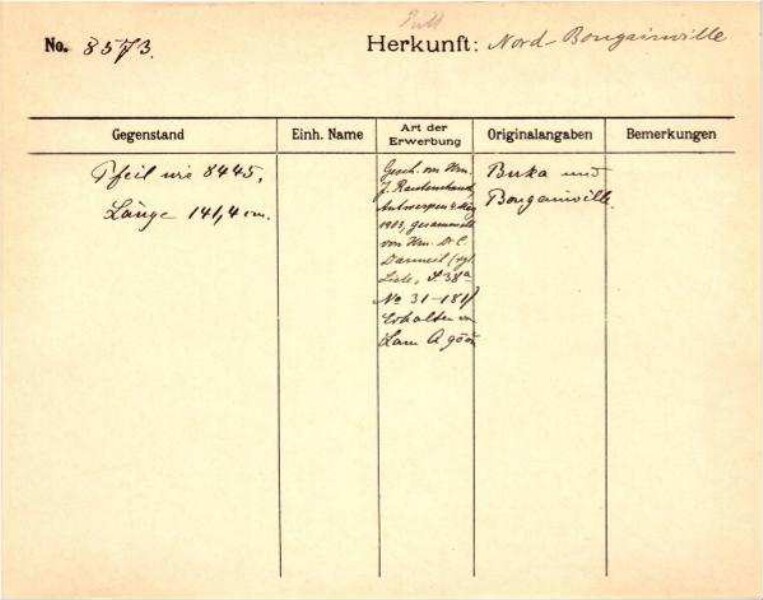 No. 8573.
Herkunft: Nord-Bougainville
Gegenstand
Einh. Name
Art der Erwerbung
Originalangaben
Bemerkungen
Pfeil wie 8445,
Länge 141,4 cm.
Gesch. von Hrn.
J.
Antwerpen
1903, gesammelt
von Hrn. Dr. C.
(vgl.
Liste, S. 38a
No 31-181)
Erhalten von
Buka und
Bougainville.